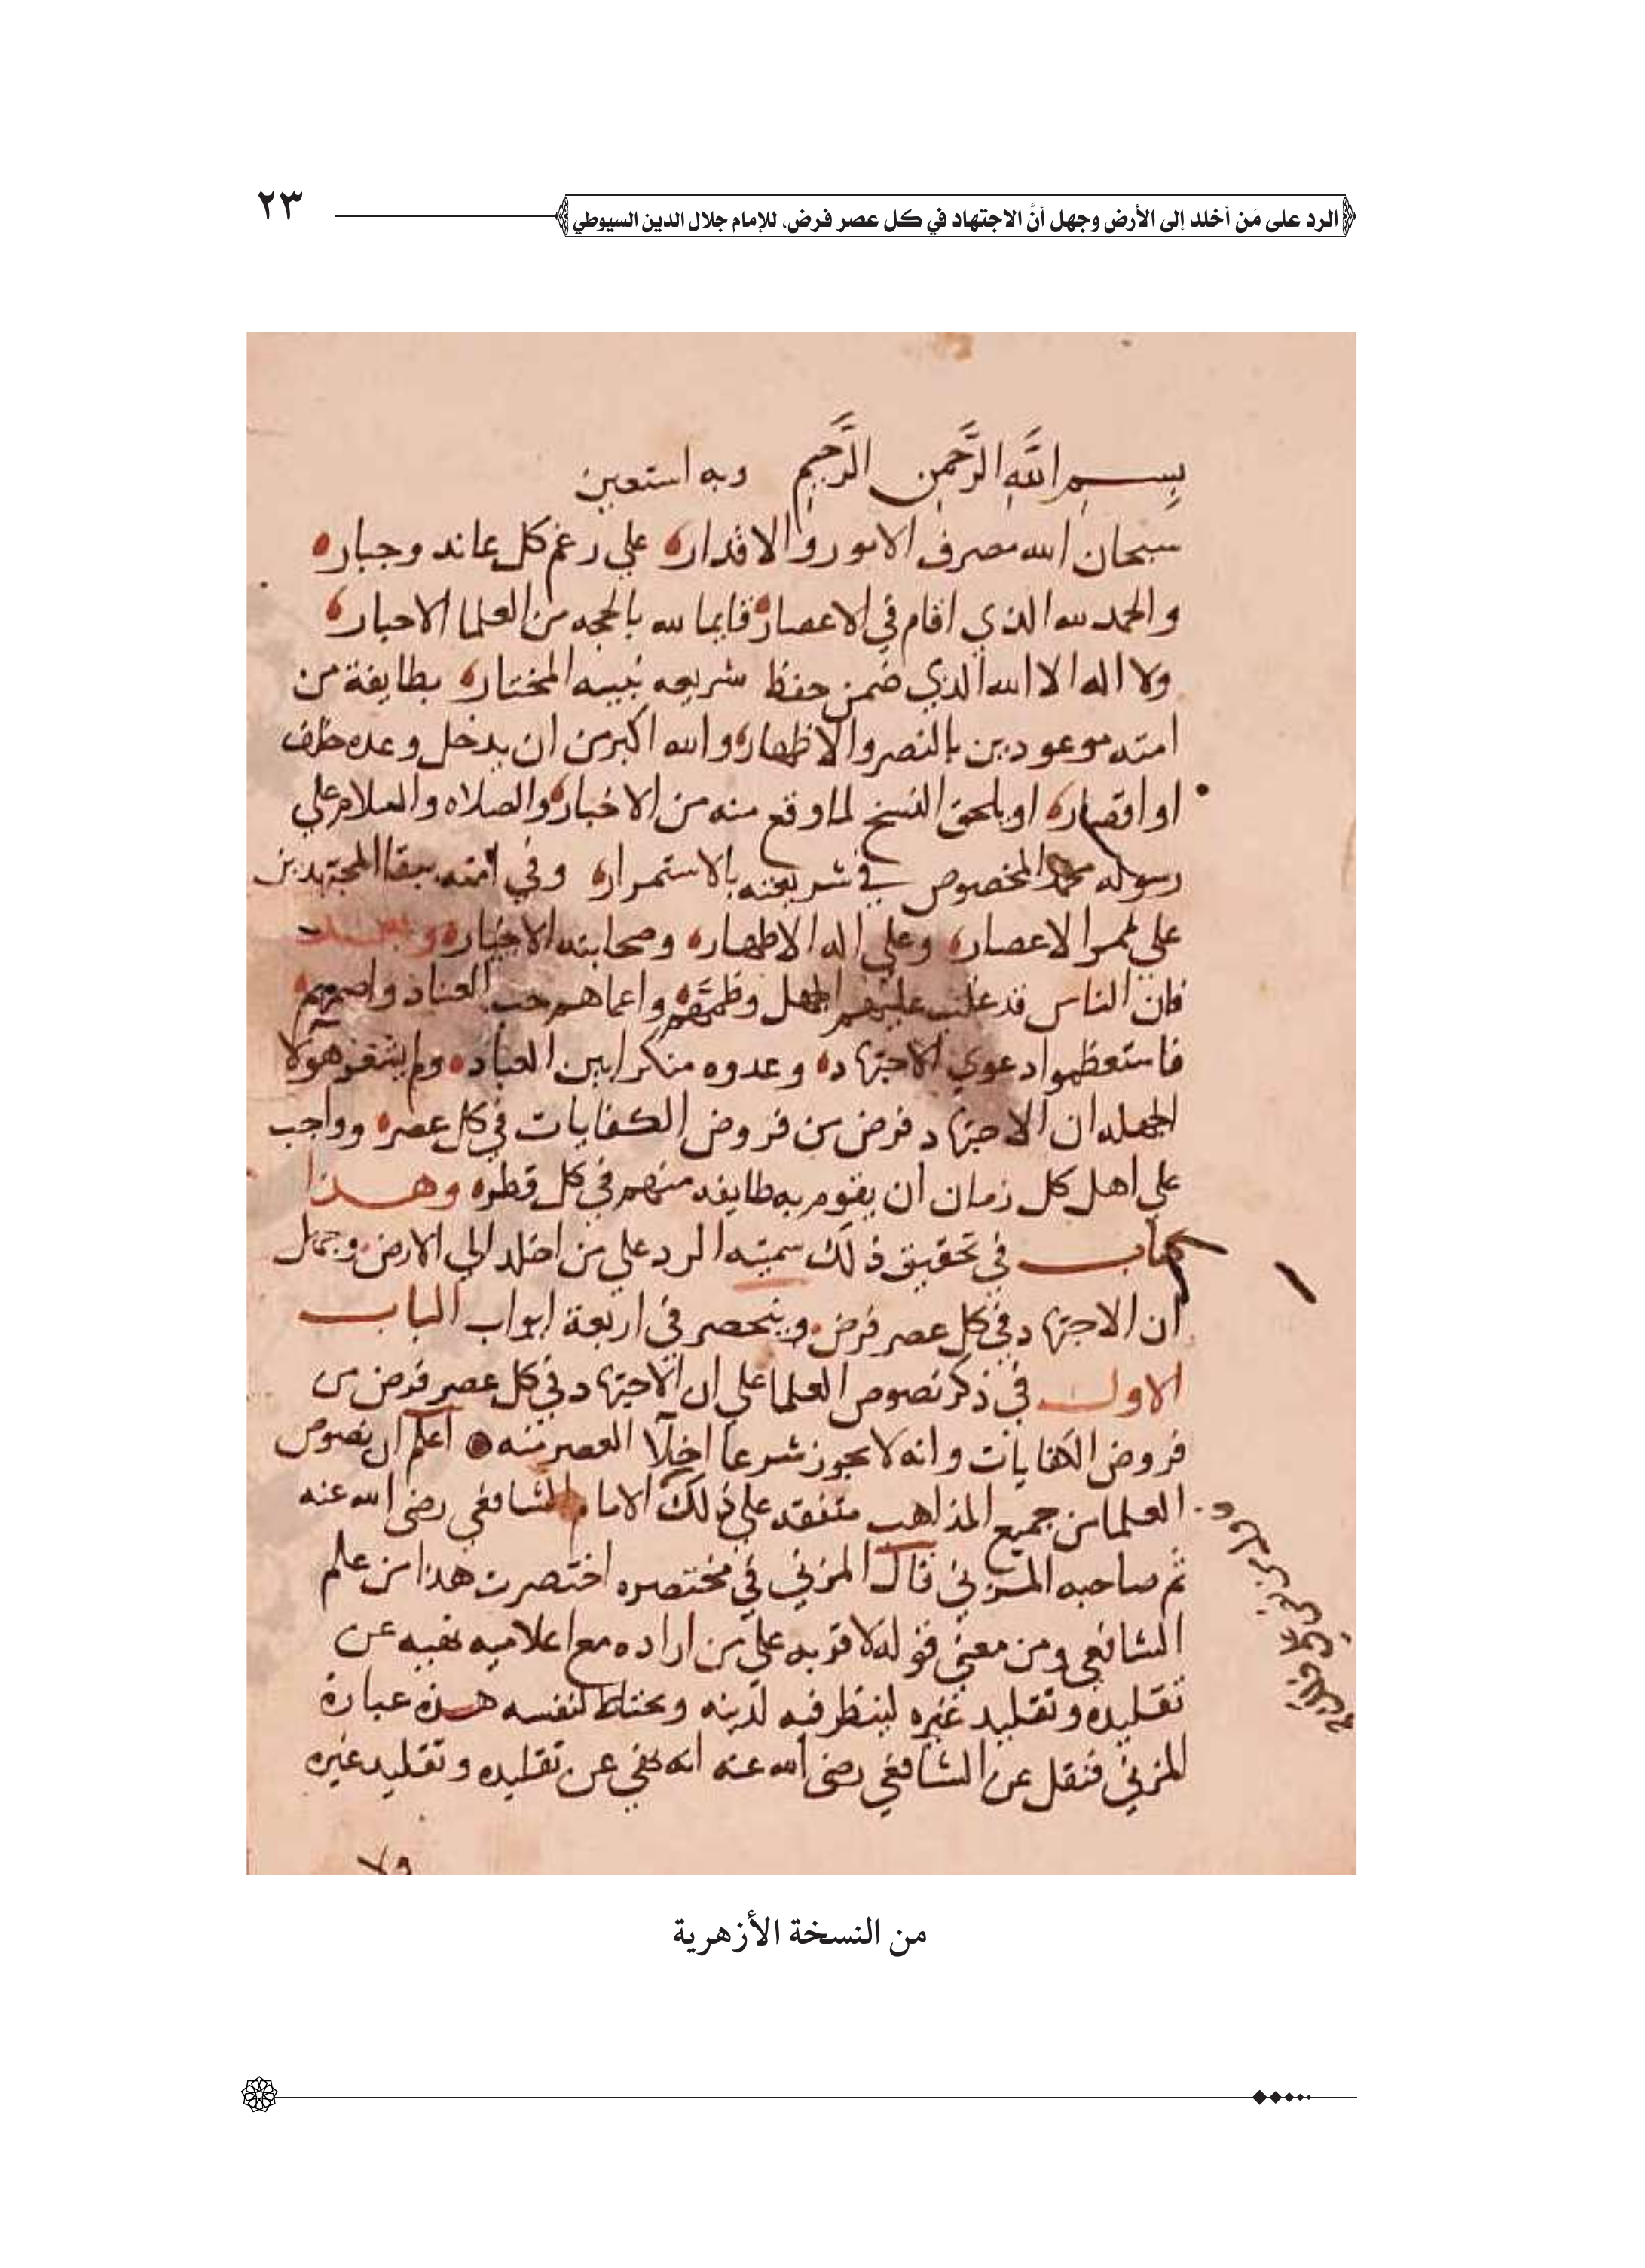 الرد على مَن أخلد إلى الأرض وجهل أنَّ الاجتهاد في كل عصر فرض، للإمام جلال الدين السيوطي
٢٣
بِسمِ اللهِ الرَّحمنِ الرَّحِيمِ وبه استعين
سبحان الله مصرف الامور والاقدار علي رغم كل عاند وجبار
والحمد لله الذي اقام في الاعصار قايما لله بالحجه من العلما الاحبار
ولا اله الا الله الذي ضمن حفظ شريعه نبيه المختار بطايفة من
امته موعودين بالنصر والاظهار والله اكبر من ان يدخل وعده خلف
او اقصار او يلحق النسخ لما وقع منه من الاخبار والصلاه والسلام علي
رسوله محمد المخصوص في شريعته بالاستمرار وفي امته ببقا المجتهدين
علي ممر الاعصار وعلي اله الاطهار وصحابته الاخيار وبعد
فان الناس قد غلب عليهم الجهل وطمهم واعماهم حب العناد واصمهم
فاستعظموا دعوي الاجتهاد وعدوه منكرا بين العباد ولم يشعر هولا
الجهله ان الاجتهاد فرض من فروض الكفايات في كل عصر وواجب
علي اهل كل زمان ان يقوم به طايفه منهم في كل قطر وهذا
كتاب في تحقيق ذلك سميته الرد علي من اخلد الي الارض وجهل
ان الاجتهاد في كل عصر فرض وينحصر في اربعة ابواب الباب
الاول في ذكر نصوص العلما علي ان الاجتهاد في كل عصر فرض من
فروض الكفايات وانه لا يجوز شرعا اخلآ العصر منه اعلم ان نصوص
العلما من جميع المذاهب متفقه علي ذلك الامام الشافعي رضى الله عنه
ثم صاحبه المزني قال المزني في مختصره اختصرت هذا من علم
الشافعي ومن معني قوله لاقربه علي من اراده مع اعلاميه نهيه عن
تقليده وتقليد غيره لينظر فيه لدينه ويحتاط لنفسه هذه عبارة
المزني فنقل عن الشافعي رضى الله عنه انه نهي عن تقليده وتقليد غيره
ولا
من النسخة الأزهرية